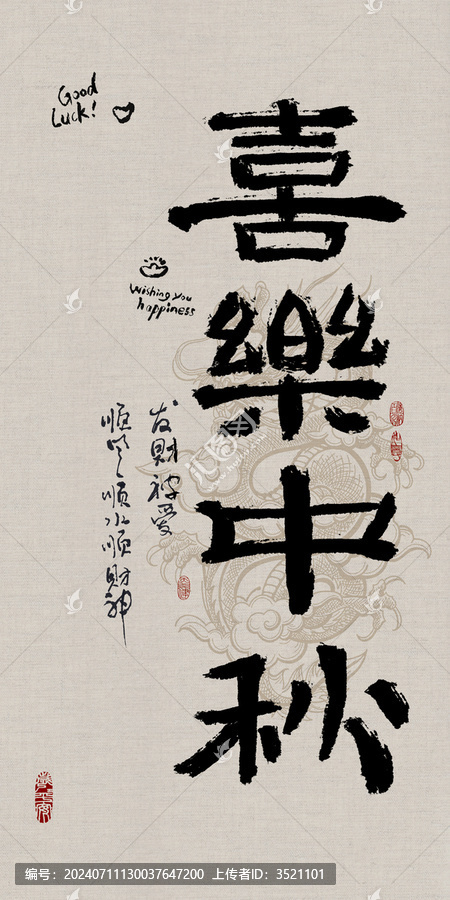 Good
Luck!
喜樂中秋
Wishing you
happiness
发財被愛
順风順水順財神
编号：20240711130037647200 上传者ID：3521101